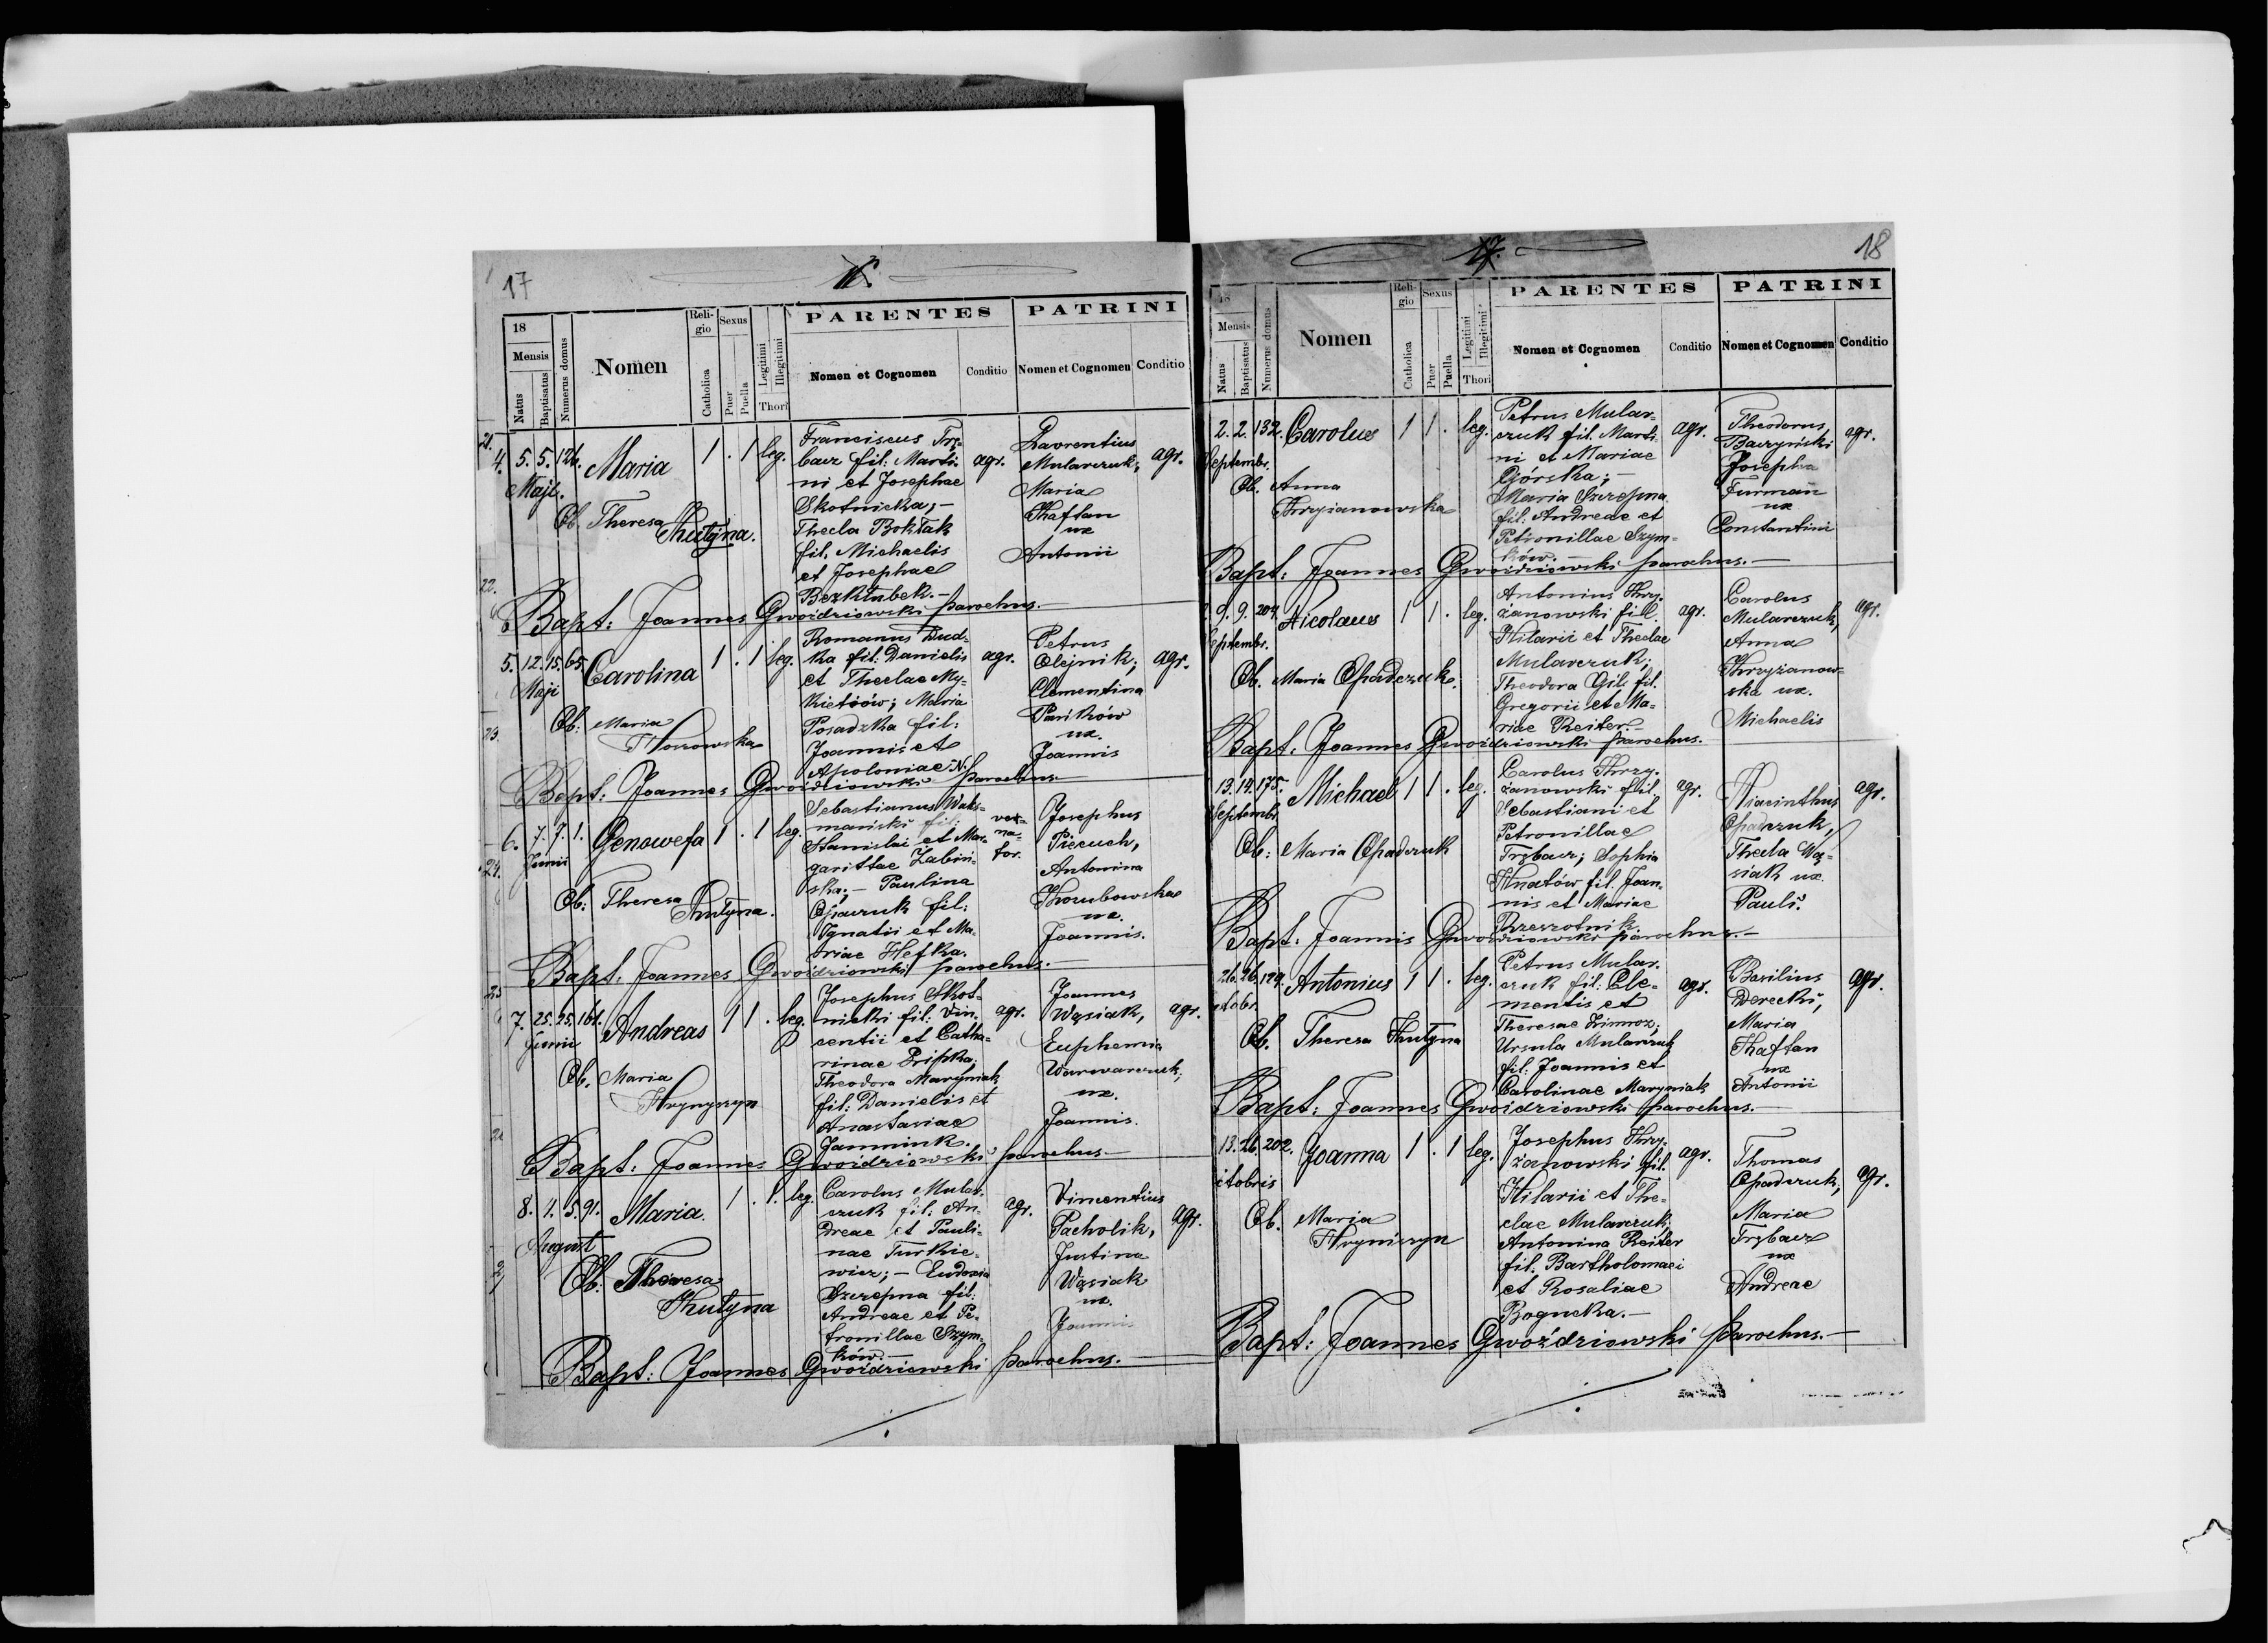 17
18
Mensis
Natus
Baptisatus
Numerus domus
Nomen
Religio
Catholica
Sexus
Puer
Puella
Legitimi
Illegitimi
Thori
PARENTES
Nomen et Cognomen
Conditio
PATRINI
Nomen et Cognomen
Conditio
21.
4. 5. 5. 126. Maria 1 . 1 leg.
Maji.
Ob. Theresa
Hutyna.
Franciscus Trę-
bacz fil: Marti-
ni et Josephae
Skotnicka; –
Thecla Boktak
fil. Michaelis
et Josephae
Bezkłubek. –
agr.
Lavrentius
Mularczuk;
Maria
Kaftan
ux
Antonii
agr.
22.
Bapt: Joannes Gwoździowski parochus. –
5. 12. 15. 65. Carolina 1 . 1 leg.
Maji
Ob: Maria
Romanus Dud-
ka fil: Danielis
et Theclae My-
kietiów; Maria
Posadzka fil:
Joannis et
Apoloniae N.
agr.
Petrus
Olejnik;
Clementina
Pańków
ux.
Joannis
agr.
23.
Bapt: Joannes Gwoździowski parochus. –
6. 7. 7. 1. Genowefa 1 . 1 leg.
Junii
Ob: Theresa
Hutyna.
Sebastianus Waks-
mański fil:
Stanislai et Mar-
garittae Żabiń-
ska; – Paulina
Opaczuk fil:
Ignatii et Ma-
riae Hefka.
Josephus
Piecuch,
Antonina
ux.
Joannis.
24.
Bapt: Joannes Gwoździowski parochus. –
25
7. 25. 25. 161. Andreas 1 1 . leg.
Junii
Ob. Maria
Hrynyszyn
Josephus Skot-
nicki fil: Vin-
centii et Catha-
rinae Pripka;
Theodora Maryniak
fil: Danielis et
Anastasiae
agr.
Joannes
Wąsiak,
Euphemia
Warwarczuk;
ux.
Joannis.
agr.
Bapt: Joannes Gwoździowski parochus. –
8. 4. 5. 91. Maria. 1 . 1. leg.
August
Ob: Theresa
Hutyna
Carolus Mular-
czuk fil: An-
dreae et Pauli-
nae Turkie-
wicz; – Eudoxia
Szczepna fil:
Andreae et Pe-
tronillae Szym-
ków. –
agr.
Vincentius
Pacholik,
Justina
Wąsiak
ux.
Joannis
agr.
Bapt: Joannes Gwoździowski parochus. –
17.
18
18
Mensis
Natus
Baptisatus
Numerus domus
Nomen
Religio
Catholica
Sexus
Puer
Puella
Legitimi
Illegitimi
Thori
PARENTES
Nomen et Cognomen
Conditio
PATRINI
Nomen et Cognomen
Conditio
2. 2. 132. Carolus 1 1 . leg.
Septembr.
Ob. Anna
Petrus Mular-
czuk fil. Marti-
ni et Mariae
Górska; –
Maria Szczepna
fil: Andreae et
Petronillae Szym-
ków. –
agr.
Theodorus
Baczyński
Josepha
Furman
ux
Constantini
agr.
Bapt: Joannes Gwoździowski parochus. –
9. 9. 204. Nicolaus 1 1 . leg.
Septembr.
Ob. Maria Opadczuk.
Antonius Krzy-
żanowski fil.
Hilarii et Theclae
Mularczuk;
Theodora Gil fil.
Gregorii et Ma-
riae Reiter. –
agr.
Carolus
Mularczuk,
Anna
Krzyżanow-
ska ux.
Michaelis
agr.
Bapt: Joannes Gwoździowski parochus.
13. 14. 175. Michael 1 1 . leg.
Septembr
Ob: Maria Opadczuk
Carolus Krzy-
żanowski fil.
Sebastiani et
Petronillae
Trębacz; Sophia
Hnatów fil. Joan-
nis et Mariae
agr.
Hiacinthus
Opadczuk,
Thecla Wą-
siak ux.
Pauli.
agr.
Bapt: Joannis Gwoździowski parochus. –
26. 26. 129. Antonius 1 1 . leg.
ctobr.
Ob. Theresa Hutyna
Petrus Mular-
czuk fil: Cle-
mentis et
Theresae Zimroz;
Ursula Mularczuk
fil: Joannis et
Carolinae Maryniak
agr.
Basilius
Derecki,
Maria
Kaftan
ux
Antonii
agr.
Bapt: Joannes Gwoździowski parochus. –
13. 26. 202. Joanna 1 . 1 leg.
ctobris
Ob. Maria
Hryniszyn
Josephus Krzy-
żanowski fil.
Hilarii et The-
clae Mularczuk;
Antonina Reiter
fil. Bartholomaei
et Rosaliae
Bogucka. –
agr.
Thomas
Opadczuk;
Maria
Trębacz
ux
Andreae
agr.
Bapt: Joannes Gwoździowski parochus. –